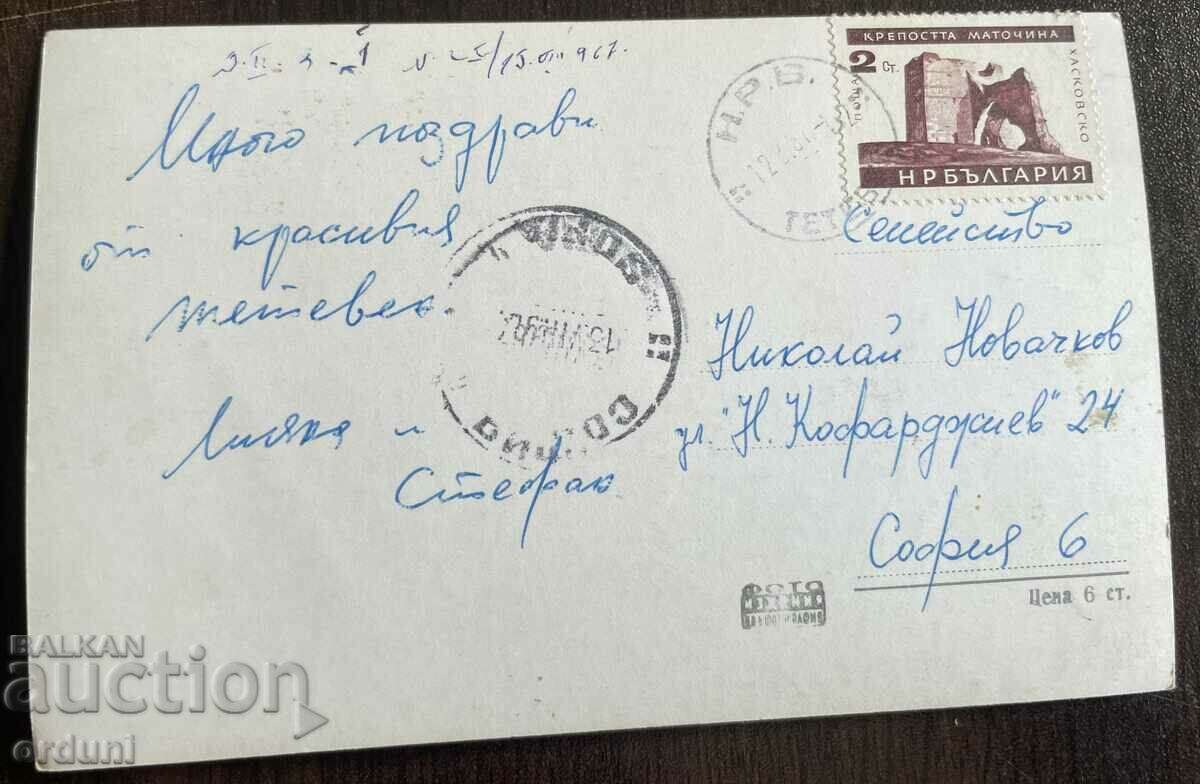 15. VIII 967.
Много поздрави
от красивия
Тетевен.
и
Стефан
КРЕПОСТТА МАТОЧИНА
2 Ст.
ПОЩА
ХАСКОВСКО
НРБЪЛГАРИЯ
Н.Р.Б.
12
ТЕТЕВ
СОФИЯ
13.VII.1967
Семейство
Николай Новачков
ул. "Н. Кофарджиев" 24
София 6
ФОТО
Цена 6 ст.
BALKAN
auction
orduni